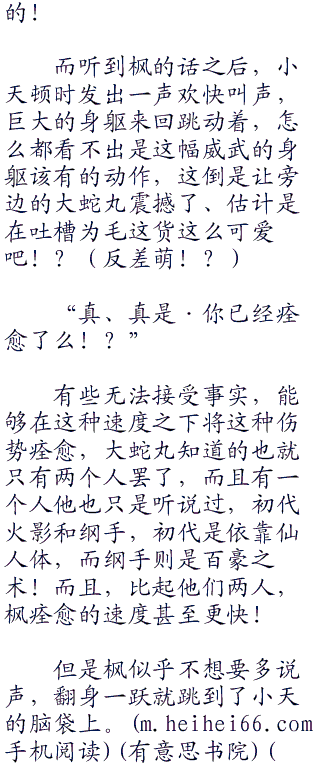 的！
而听到枫的话之后，小
天顿时发出一声欢快叫声，
巨大的身躯来回跳动着，怎
么都看不出是这幅威武的身
躯该有的动作，这倒是让旁
边的大蛇丸震撼了、估计是
在吐槽为毛这货这么可爱
吧！？（反差萌！？）
“真、真是·你已经痊
愈了么！？”
有些无法接受事实，能
够在这种速度之下将这种伤
势痊愈，大蛇丸知道的也就
只有两个人罢了，而且有一
个人他也只是听说过，初代
火影和纲手，初代是依靠仙
人体，而纲手则是百豪之
术！而且，比起他们两人，
枫痊愈的速度甚至更快！
但是枫似乎不想要多说
声，翻身一跃就跳到了小天
的脑袋上。(m.heihei66.com
手机阅读)(有意思书院)(